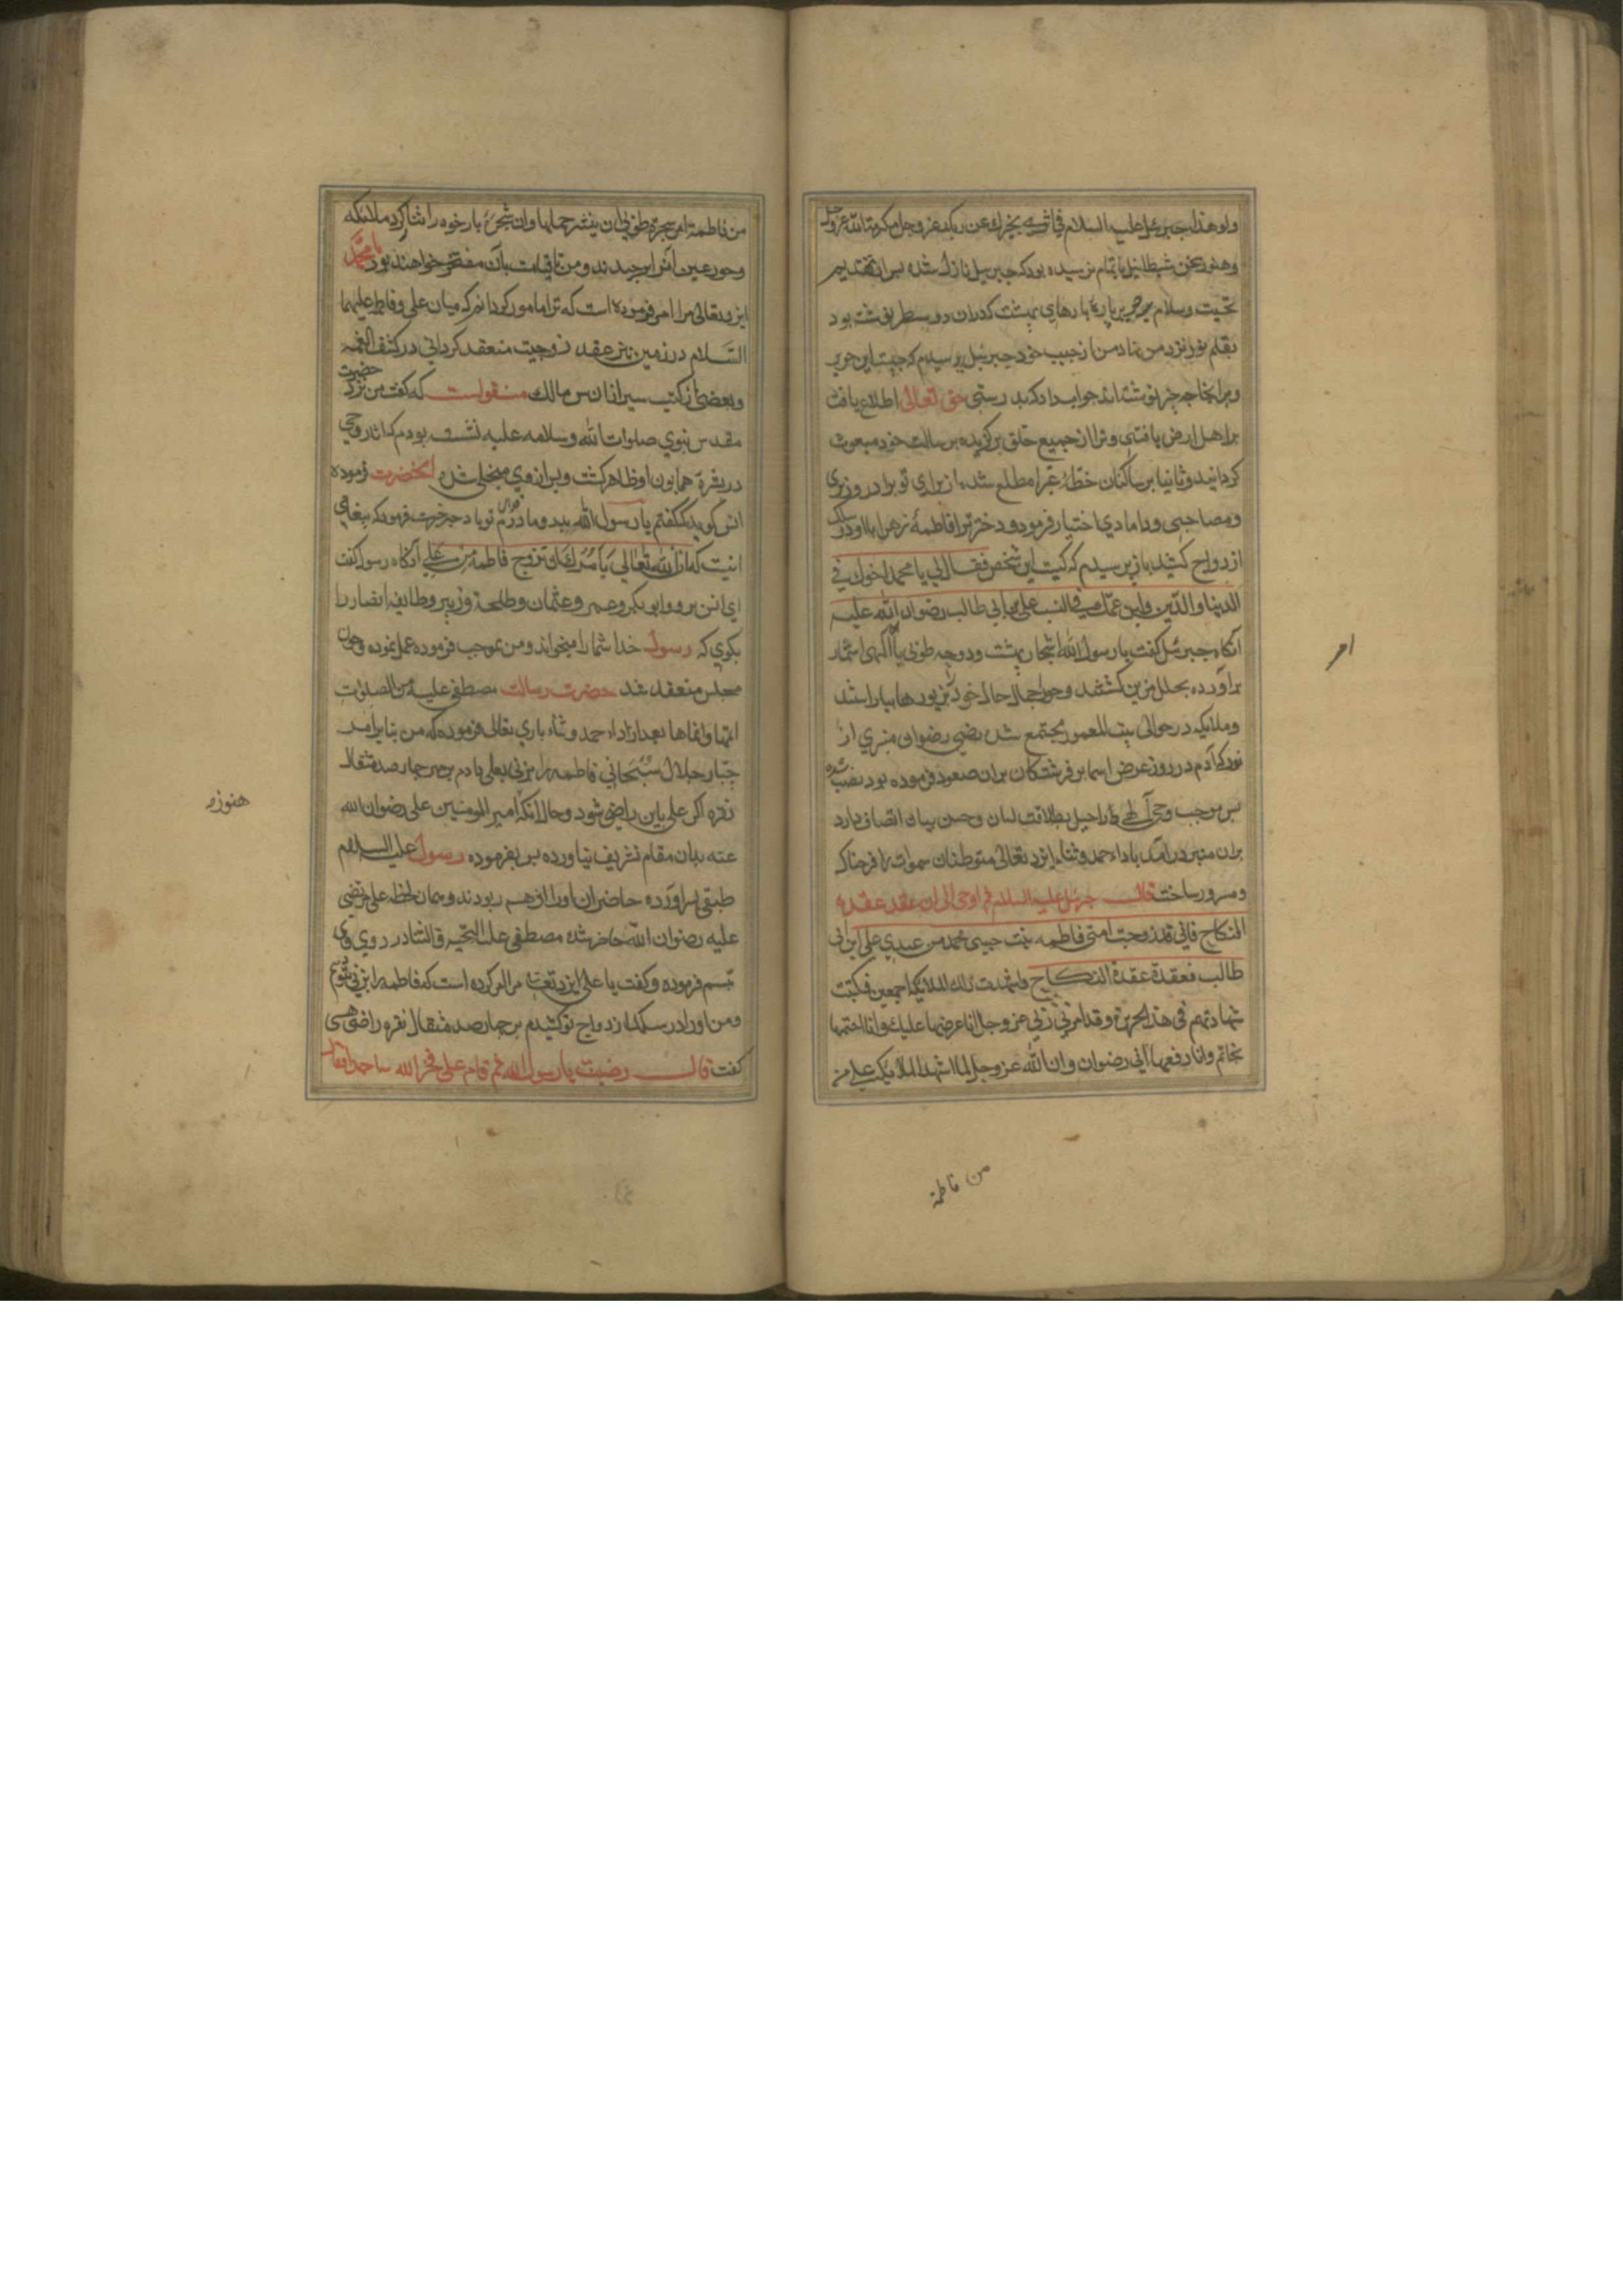 ولو هذا جبرئیل علیه السلام فی اثری یخبرك عن ربك عز وجل مکرمة الله عز وجل
وهنوز سخن شیطائیل باتمام نرسیده بود که جبرئیل نازل شده پس از تقدیم
تحیت وسلام حریر پاره از حریرهای بهشت که دران دو سطر نوشته بود
بقلم نور نزد من نهاد من از حبیب خود جبرئیل پرسیدم که چیست این حریر
ودر اینجا چه چیز نوشته اند جواب داد که بدرستی حق تعالی اطلاع یافت
بر اهل ارض یافتنی وترا از جمیع خلق برگزیده برسالت خود مبعوث
گردانید وثانیا بر ساکنان خطه غبرا مطلع شده از برای تو برادر وزیری
ومصاحبی ودامادی اختیار فرمود ودختر ترا فاطمهٔ زهرا با او در سلك
ازدواج کشید باز پرسیدم که کیست این شخص فقال لی یا محمد اخوك فی
الدنیا والدین وابن عمك فی النسب علی بن ابی طالب رضوان الله علیه
آنکاه جبرئیل گفت یا رسول الله اشجار بهشت ودوحه طوبی با اثمار
برآورده بحلل مزین گشتند وحور اجمال حال خود بزیورها بیاراستند
وملایکه در حوالی بیت المعمور مجتمع شدند رضوان منبری از
نور که آدم در روز عرض اسما بر فرشتگان بران صعود فرموده بود نصب شده
پس بموجب وحی آلهی راحیل بطلاقت لسان وحسن بیان اتصاف دارد
بران منبر درآمد باداء حمد وثناء ایزد تعالی متوطنان سموات را فرحناك
ومسرور ساخت قال جبرئیل علیه السلام ثم اوحی الی ان عقد عقدة
النکاح فانی قد زوجت امتی فاطمه بنت حبیبی محمد من عبدی علی ابن ابی
طالب فعقدة عقدة النکاح واشهدت ذلك الملایکة اجمعین فکتبت
شهادتهم فی هذا الحریرة وقد امرنی ربی عز وجل ان اعرضها علیك وان اختمها
بخاتم وان ادفعها الی رضوان وان الله عز وجل لما اشهد الملایکة علی
من فاطمة
امر
من فاطمة امر شجرة طوبی ان ینشر حملها وان شجره بار خود را نثار کرد ملائکه
وحور عین آنرا برچیدند ومن تا قیامت بآن مفتخر خواهند بود یا محمد
ایزد تعالی مرا امر فرموده است که ترا مامور گردانم که میان علی وفاطمه علیهما
السلام در زمین نیز عقد زوجیت منعقد گردانی در کشف الغمه
وبعضی از کتب سیر از انس مالك منقولست که گفت من نزد حضرت
مقدس نبوی صلوات الله وسلامه علیه نشسته بودم که آثار وحی
در بشرۀ همایون او ظاهر گشت وپس از وی منجلی شد آنحضرت فرموده
انس گوید که گفتم یا رسول الله پدر ومادرم فدای تو باد حضرت فرمود که پیغامی
اینست که ان الله تعالی یامرك ان تزوج فاطمه من علی آنکاه رسول گفت
ای انس برو وابوبکر وعمر وعثمان وطلحة وزبیر وطایفه انصار را
بگوی که رسول خدا شما را میخواند ومن بموجب فرموده عمل نموده وچون
مجلس منعقد شد حضرت رسالت مصطفی علیه من الصلوات
اتمها وانماها بعد از اداء حمد وثناء باری تعالی فرموده که من بنابر امر
جبار جلال سبحانی فاطمه را بزنی بعلی دادم بر مهر چهار صد مثقال
نقره اگر علی باین راضی شود وحال آنکه امیر المومنین علی رضوان الله
عنه بدان مقام تشریف نیاورده پس بفرموده رسول علیه السلام
طبقی بسر آورده حاضران اورا از هم ربودند وهمان لحظه علی مرتضی
علیه رضوان الله حاضر شده مصطفی علیه التحیة والثنا در روی وی
تبسم فرموده وگفت یا علی ایزد تعالی مرا امر کرده است که فاطمه را بزنی بتو دهم
ومن اورا در سلك ازدواج تو کشیدم بر چهار صد مثقال نقره راضی هستی
گفت قال رضیت یا رسول الله ثم قام علی فخر الله ساجدا فقال
هنوز